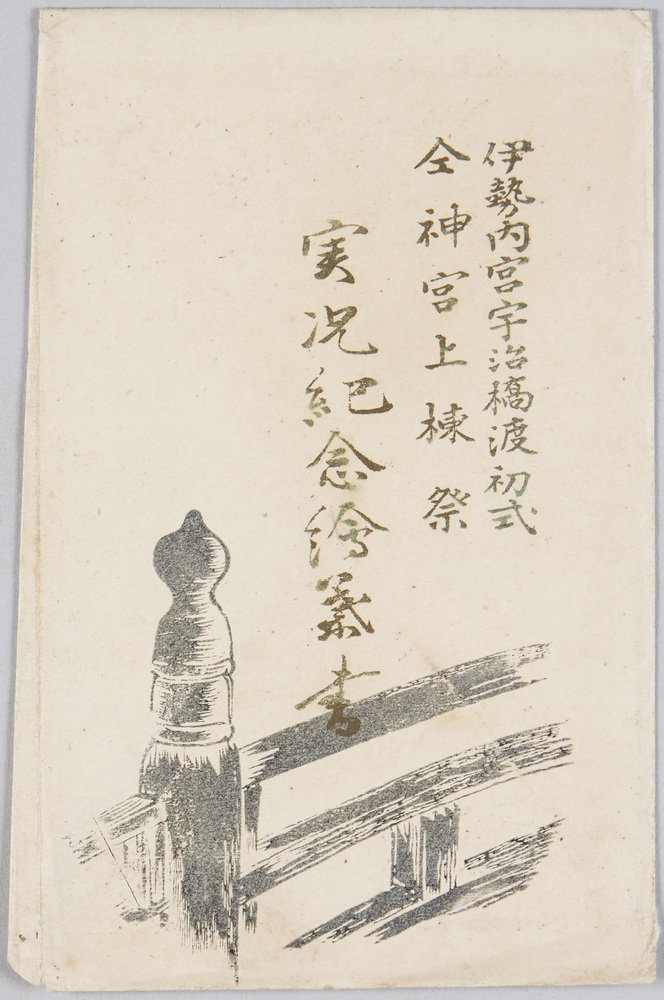 伊勢内宮宇治橋渡初式
仝神宮上棟祭
実况紀念繪葉書